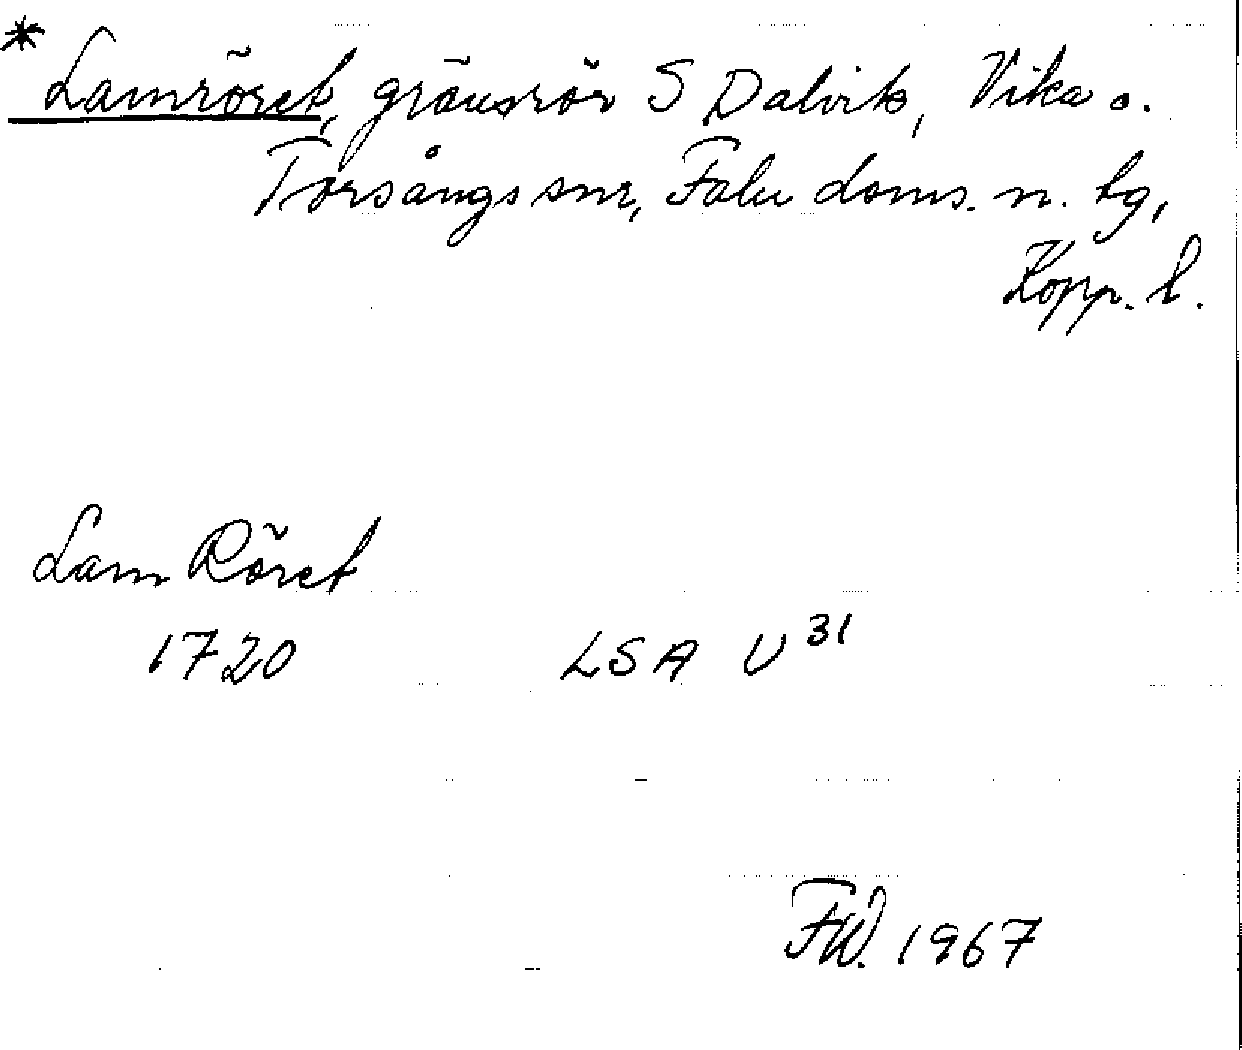 * Lamröret, gränsrör S Dalvik, Vika o.
Torsångs snr, Falu doms. n. tg,
Kopp. l.
Lam Röret
1720 LSA U³¹
F.W. 1967